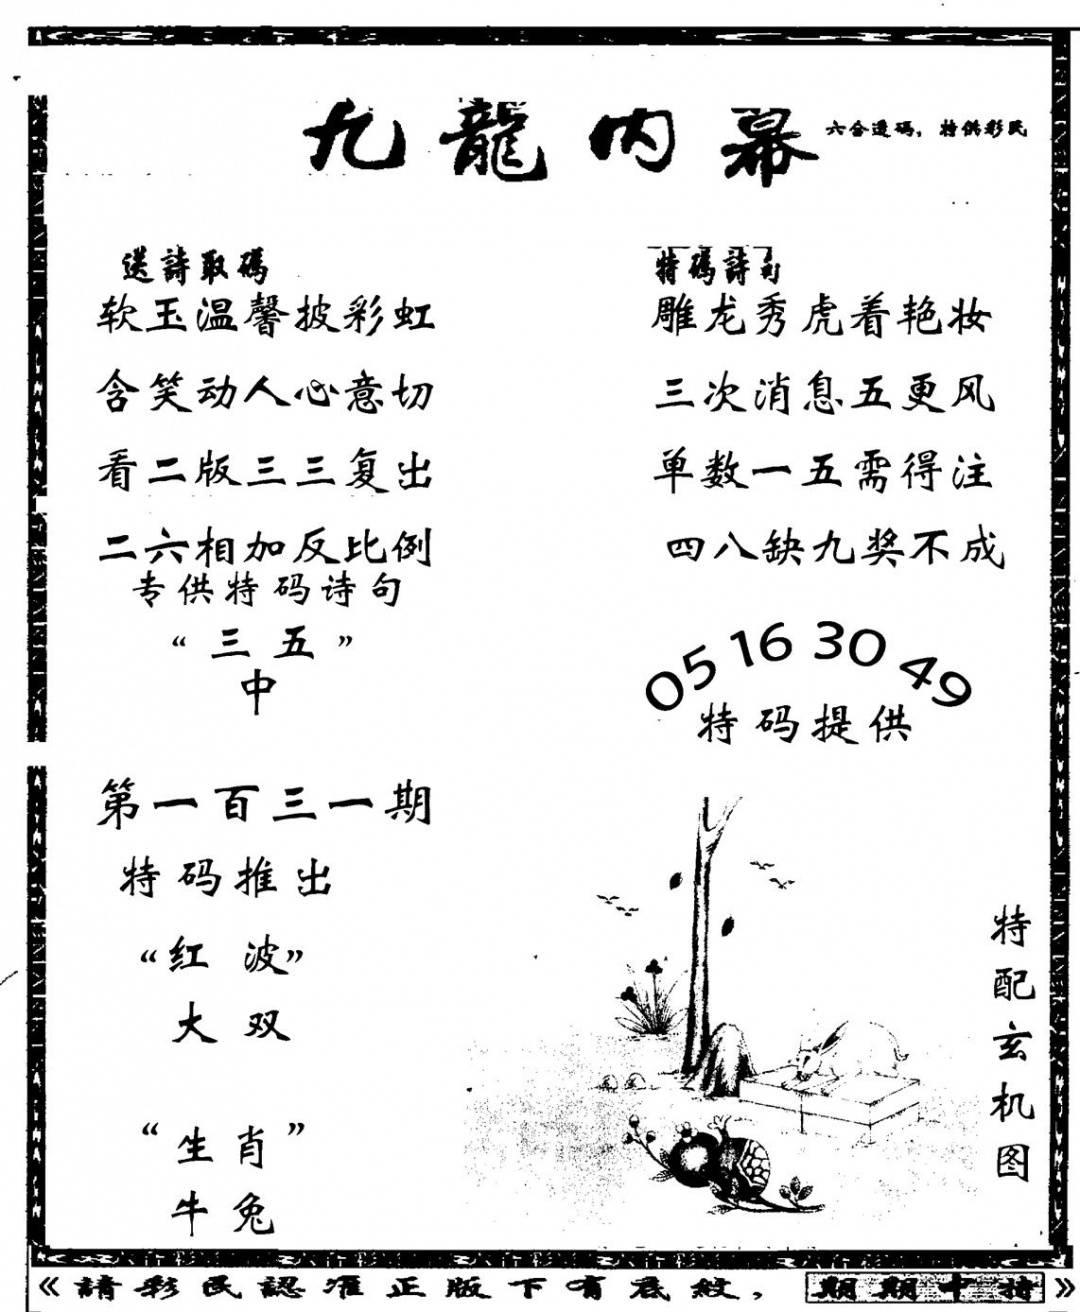 九龍内幕
六合透码，特供彩民
送詩取碼
软玉温馨披彩虹
含笑动人心意切
看二版三三复出
二六相加反比例
专供特码诗句
“三五”
中
特碼詩句
雕龙秀虎着艳妆
三次消息五更风
单数一五需得注
四八缺九奖不成
05 16 30 49
特码提供
第一百三一期
特码推出
“红波”
大双
“生肖”
牛兔
特配玄机图
《請彩民認准正版下有底紋，期期中特》